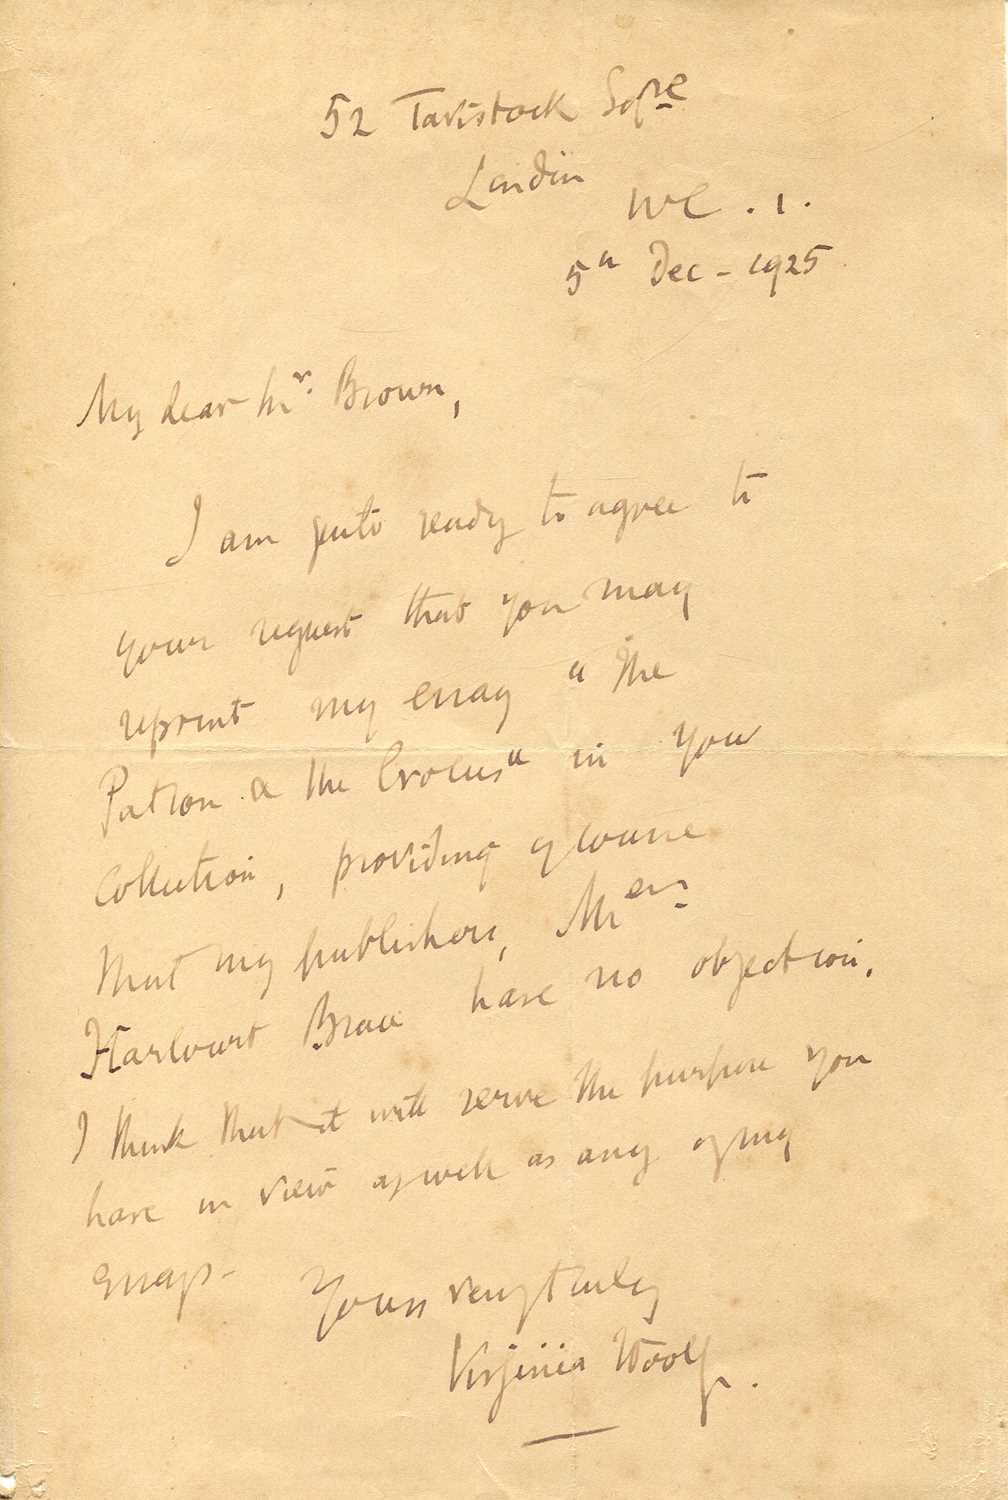 52 Tavistock Sqre
London
WC.1.
5th Dec - 1925
My dear Mr. Brown,
I am quite ready to agree to
your request that you may
reprint my essay "The
Patron & the Crocus" in your
collection, providing of course
that my publishers, Messrs
Harcourt Brace have no objection.
I think that it will serve the purpose you
have in view as well as any of my
essays -
Yours very truly
Virginia Woolf.